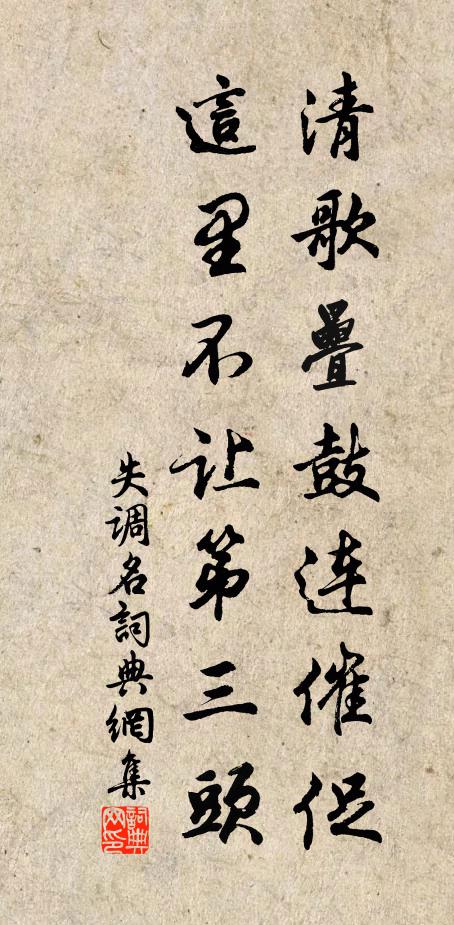 清歌疊鼓連催促
這里不让第三頭
失调名詞典網集
詞典网印